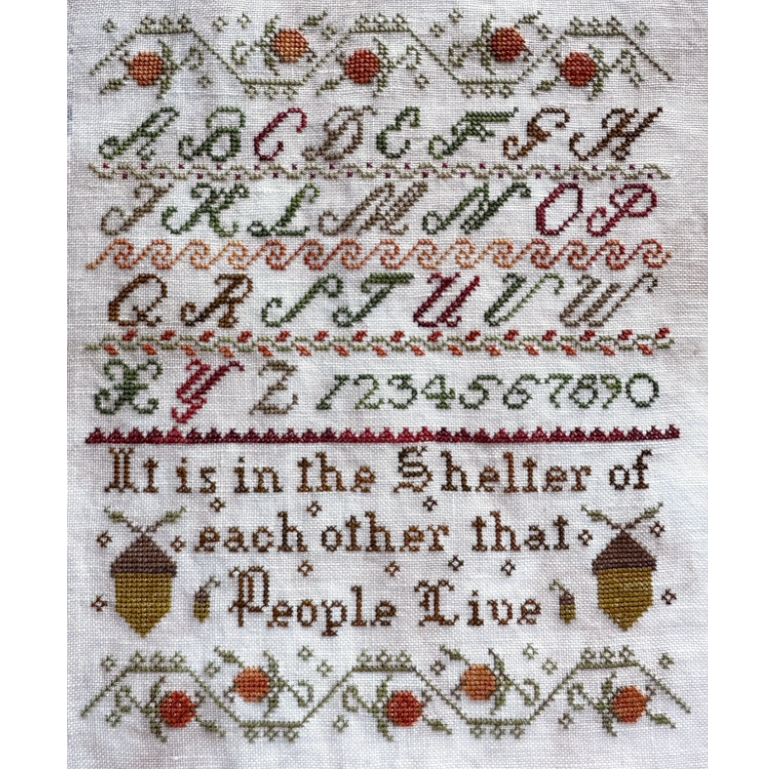 A B C D E F G H
I K L M N O P
Q R S T U V W
X Y Z 1234567890
It is in the Shelter of
each other that
People Live